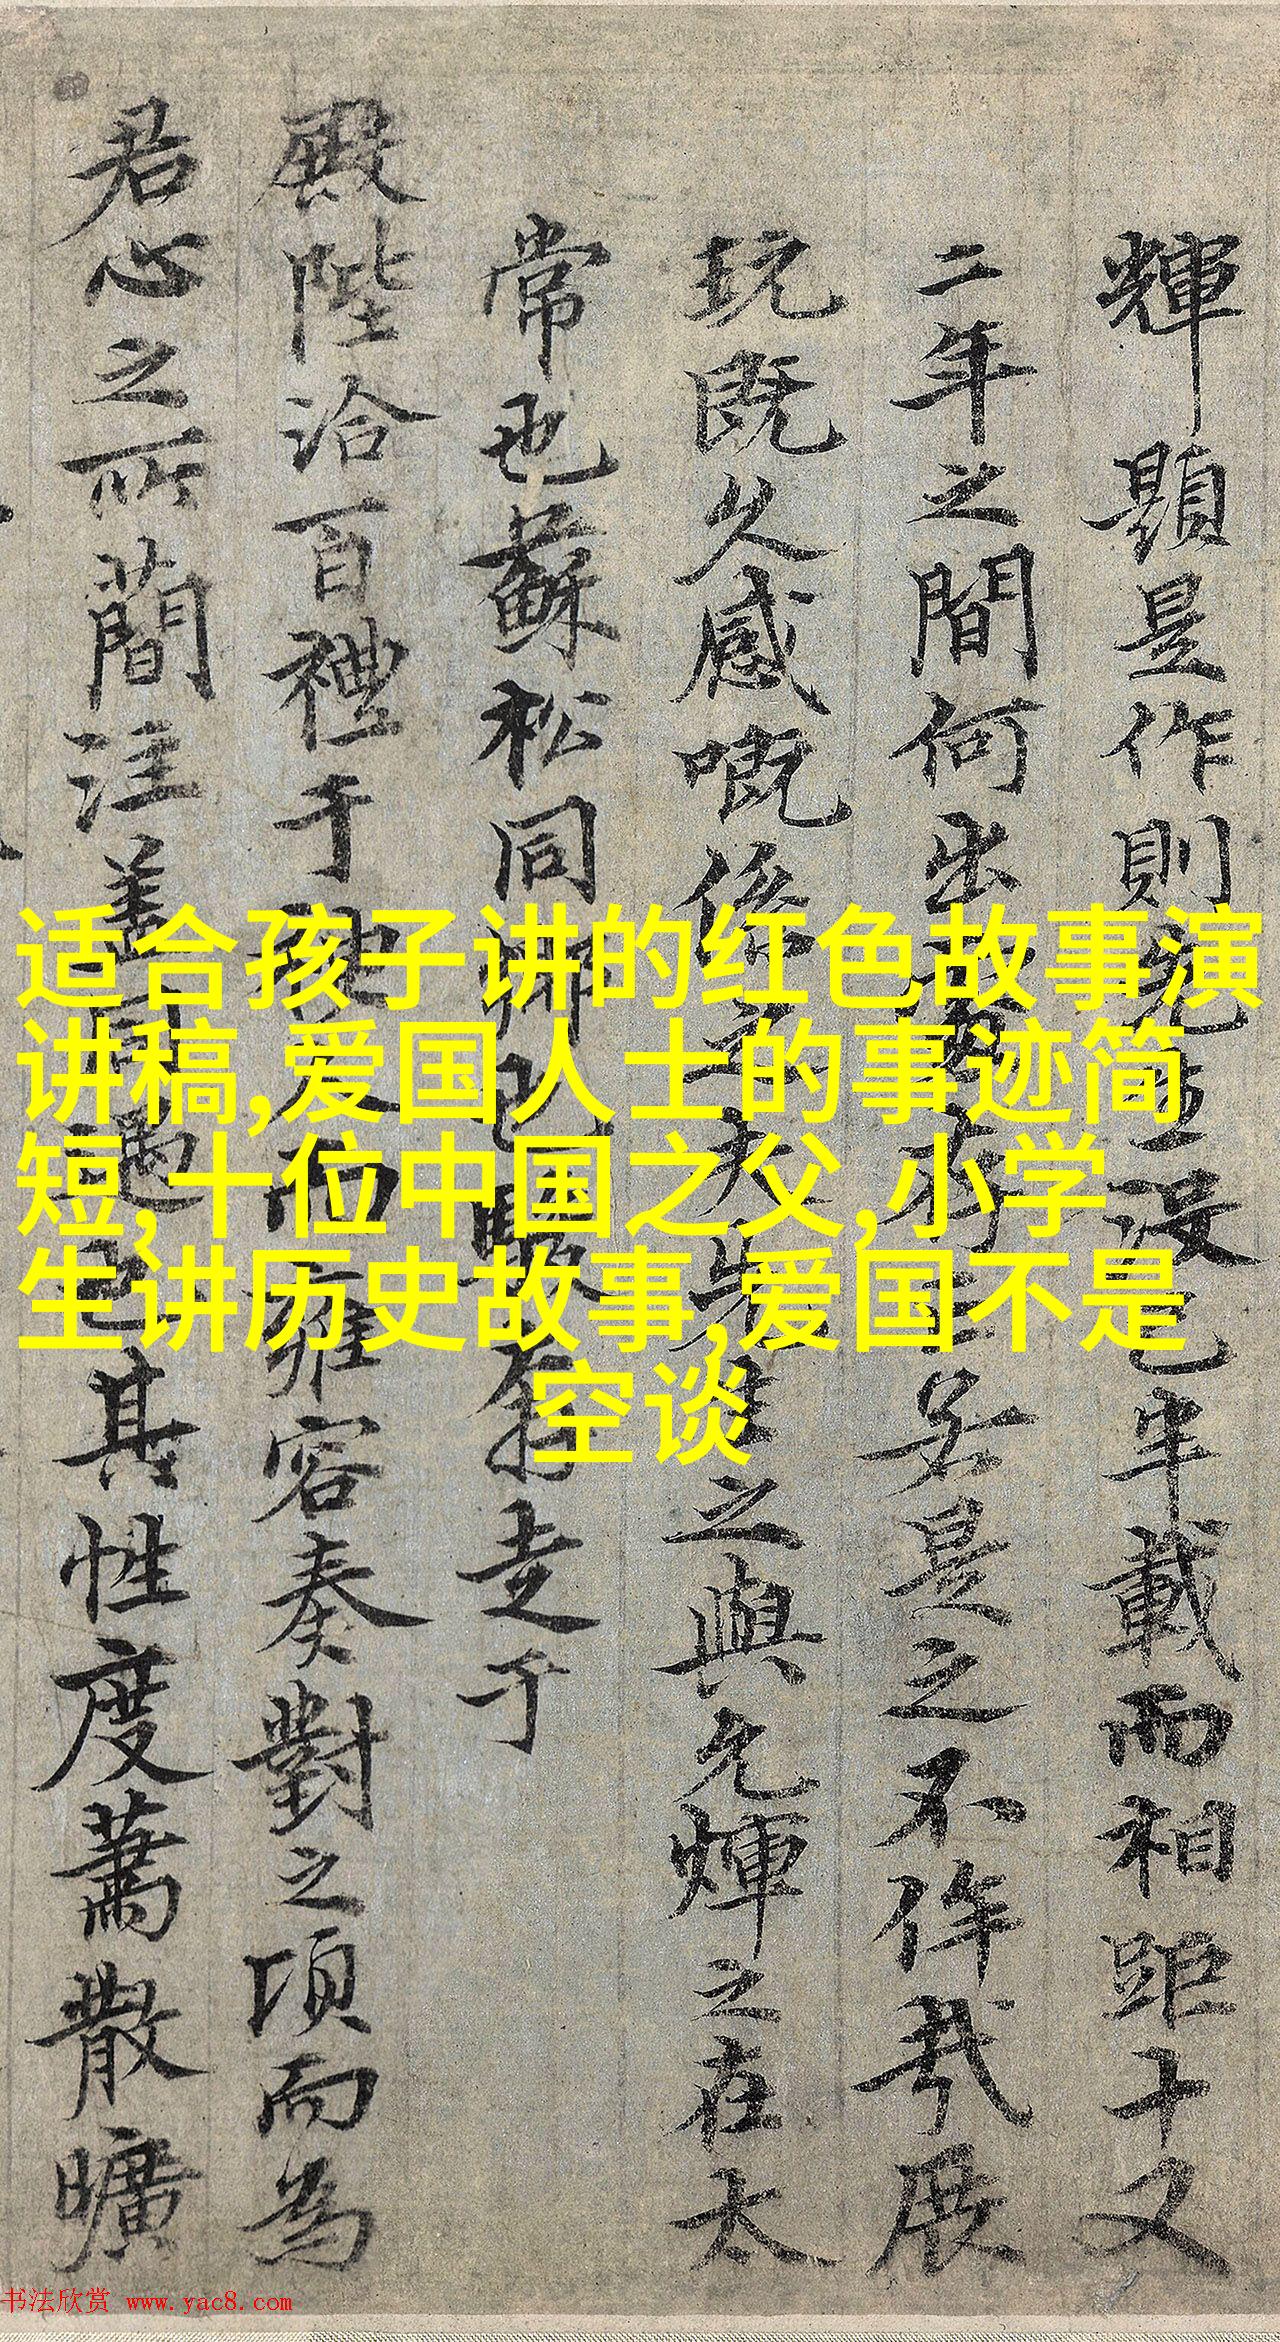 輝題是作則
設已半載而相距十又
二年之間何出
若是之不侔哉展
玩既久感嘅係之
之與允煇之在太
常也蘇松同
走于
殿陛洽百禮于
而雍容奏對之頃而為
君心之所簡注
其性度蕭散曠
适合孩子讲的红色故事演
讲稿,爱国人士的事迹简
短,十位中国之父,小学
生讲历史故事,爱国不是
空谈
书法欣赏 www.yac8.com